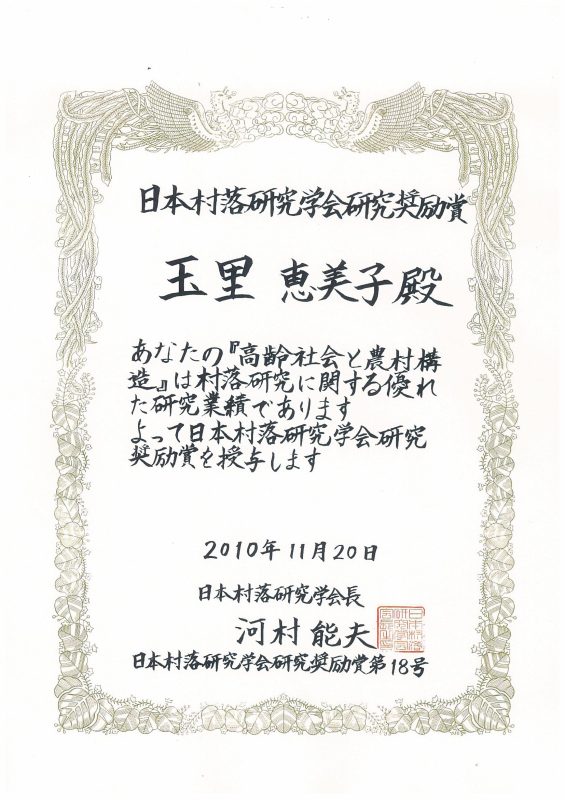 日本村落研究学会研究奨励賞
玉里 恵美子殿
あなたの『高齢社会と農村構
造』は村落研究に関する優れ
た研究業績であります
よって日本村落研究学会研究
奨励賞を授与します
2010年11月20日
日本村落研究学会長
河村 能夫
日本村落研究学会研究奨励賞第18号